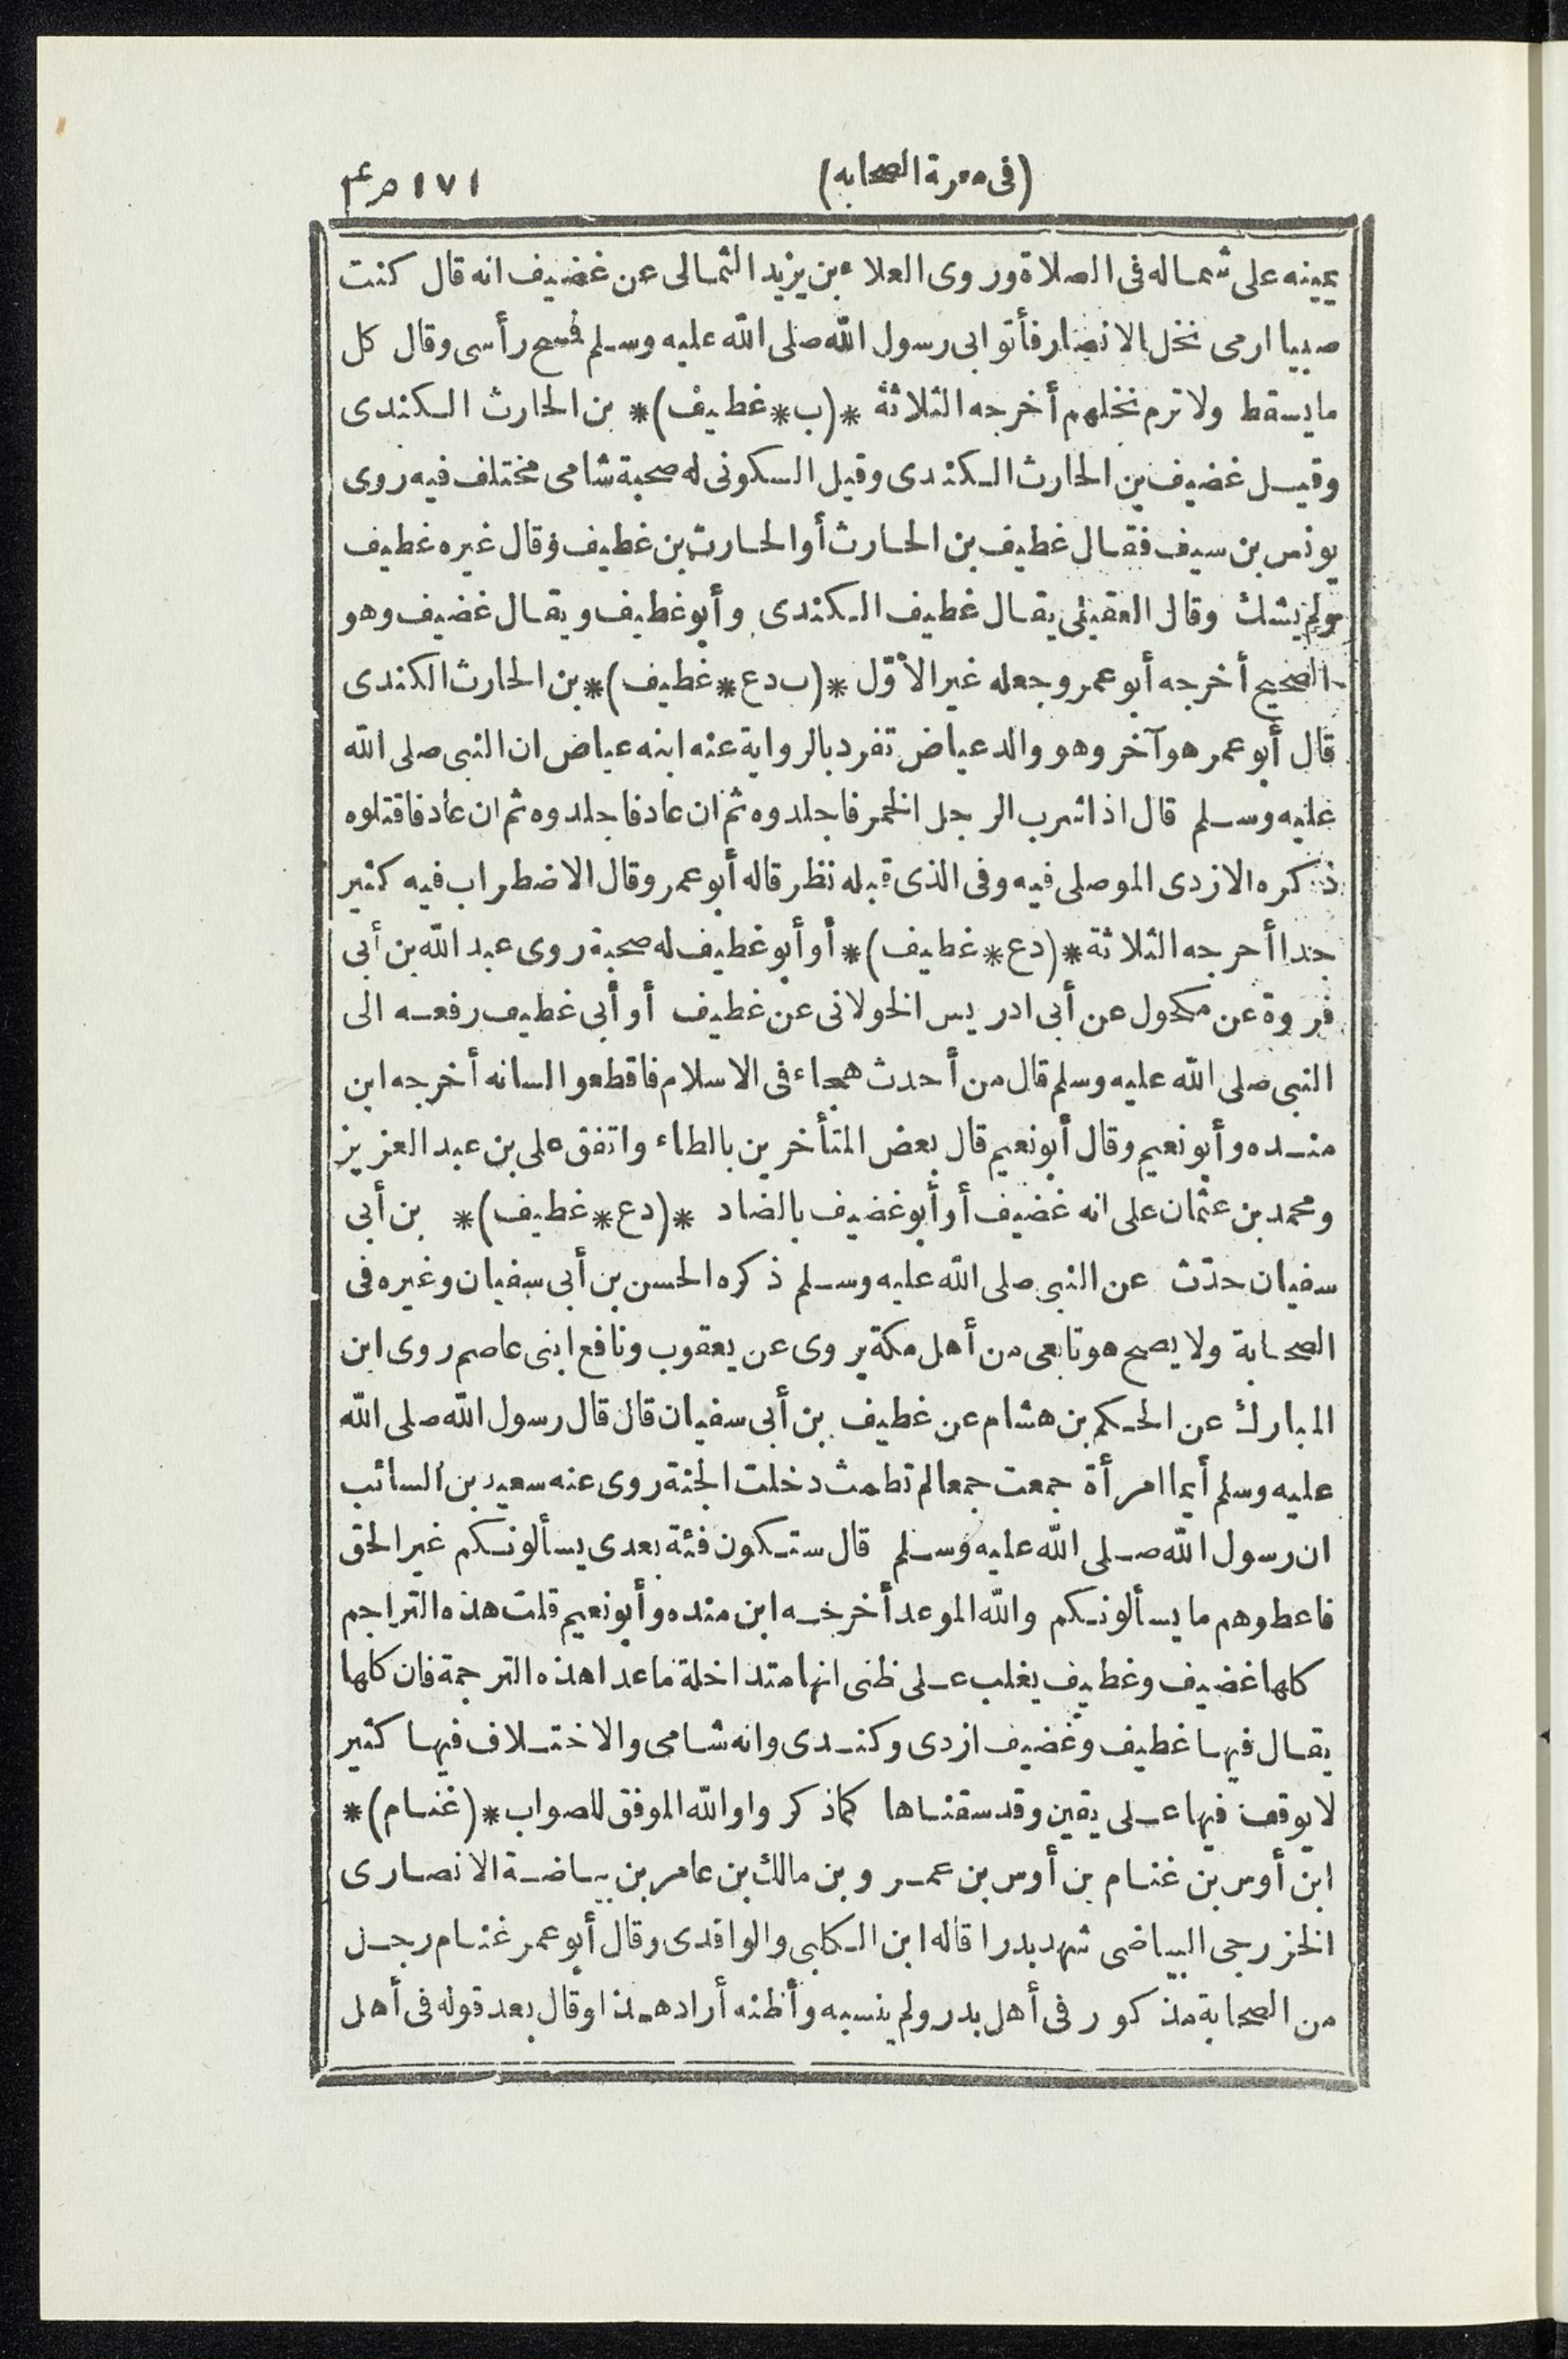 (فى معرفة الصحابه) ١٧١
يمينه على شماله فى الصلاة وروى العلاء بن يزيد الثمالى عن غضيف انه قال كنت
صبيا ارمى نخل الانصار فأتوا بى رسول الله صلى الله عليه وسلم فمسح رأسى وقال كل
ما يسقط ولا ترم نخلهم أخرجه الثلاثة *(ب*غطيف)* بن الحارث الكندى
وقيل غضيف بن الحارث الكندى وقيل السكونى له صحبة شامى مختلف فيه روى
يونس بن سيف فقال غطيف بن الحارث أو الحارث بن غطيف وقال غيره غطيف
ولم يشك وقال العقيلى يقال غطيف الكندى وأبو غطيف ويقال غضيف وهو
الصحيح أخرجه أبو عمر وجعله غير الأوّل *(ب دع*غطيف)* بن الحارث الكندى
قال أبو عمر هو آخر وهو والد عياض تفرد بالرواية عنه ابنه عياض ان النبى صلى الله
عليه وسلم قال اذا شرب الرجل الخمر فاجلدوه ثم ان عاد فاجلدوه ثم ان عاد فاقتلوه
ذكره الازدى الموصلى فيه وفى الذى قبله نظر قاله أبو عمر وقال الاضطراب فيه كثير
جدا أخرجه الثلاثة *(دع*غطيف)* أو أبو غطيف له صحبة روى عبد الله بن أبى
فروة عن مكحول عن أبى ادريس الخولانى عن غطيف أو أبى غطيف رفعه الى
النبى صلى الله عليه وسلم قال من أحدث هجاء فى الاسلام فاقطعوا لسانه أخرجه ابن
منده وأبو نعيم وقال أبو نعيم قال بعض المتأخرين بالطاء واتفق على بن عبد العزيز
ومحمد بن عثمان على انه غضيف أو أبو غضيف بالضاد *(دع*غطيف)* بن أبى
سفيان حدّث عن النبى صلى الله عليه وسلم ذكره الحسن بن أبى سفيان وغيره فى
الصحابة ولا يصح هو تابعى من أهل مكة يروى عن يعقوب ونافع ابنى عاصم روى ابن
المبارك عن الحكم بن هشام عن غطيف بن أبى سفيان قال قال رسول الله صلى الله
عليه وسلم أيما امرأة جمعت جمعا لم تطمث دخلت الجنة روى عنه سعيد بن السائب
ان رسول الله صلى الله عليه وسلم قال ستكون فئة بعدى يسألونكم غير الحق
فاعطوهم ما يسألونكم والله الموعد أخرجه ابن منده وأبو نعيم قلت هذه التراجم
كلها غضيف وغطيف يغلب على ظنى انها متداخلة ما عدا هذه الترجمة فان كلها
يقال فيها غطيف وغضيف ازدى وكندى وانه شامى والاختلاف فيها كثير
لا يوقف فيها على يقين وقد سقناها كما ذكروا والله الموفق للصواب *(غنام)*
ابن أوس بن غنام بن أوس بن عمرو بن مالك بن عامر بن بياضة الانصارى
الخزرجى البياضى شهد بدرا قاله ابن الكلبى والواقدى وقال أبو عمر غنام رجل
من الصحابة مذكور فى أهل بدر ولم ينسبه وأظنه أراد هذا وقال بعد قوله فى أهل